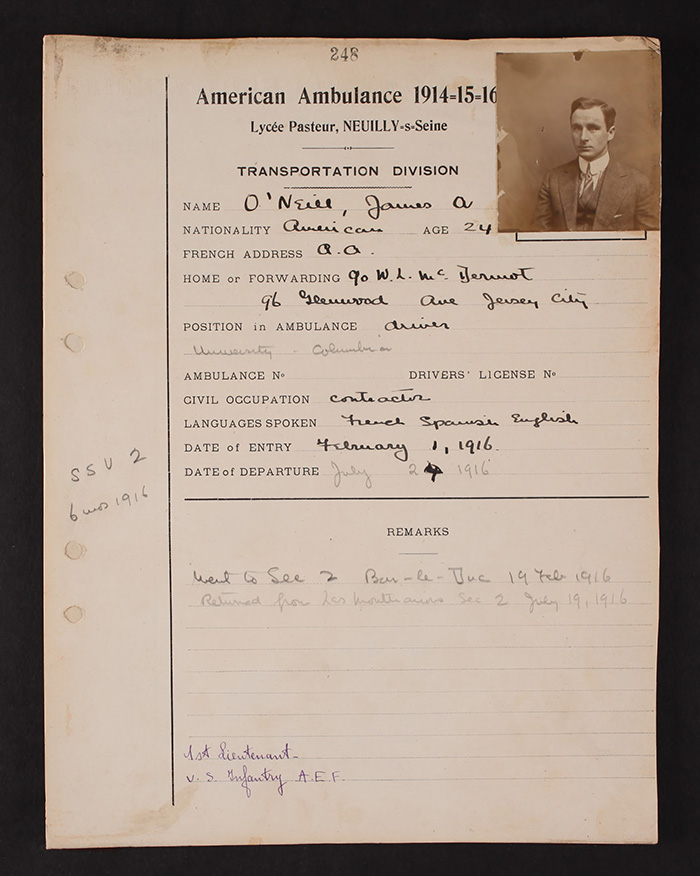 248
American Ambulance 1914=15=16
Lycée Pasteur, NEUILLY=s=Seine
TRANSPORTATION DIVISION
NAME O'Neill, James A
NATIONALITY American AGE 24
FRENCH ADDRESS A.A.
HOME or FORWARDING c/o W.L. McDermot
96 Glenwood Ave Jersey City
POSITION in AMBULANCE driver
University - Columbia
AMBULANCE No DRIVERS' LICENSE No
CIVIL OCCUPATION contractor
LANGUAGES SPOKEN French Spanish English
DATE of ENTRY February 1, 1916.
DATE of DEPARTURE July 24 1916
SSU 2
6 mos 1916
REMARKS
Went to Sec 2 Bar-le-Duc 19 Feb 1916
Returned from Sec 2 July 19, 1916
1st Lieutenant-
U.S. Infantry A.E.F.